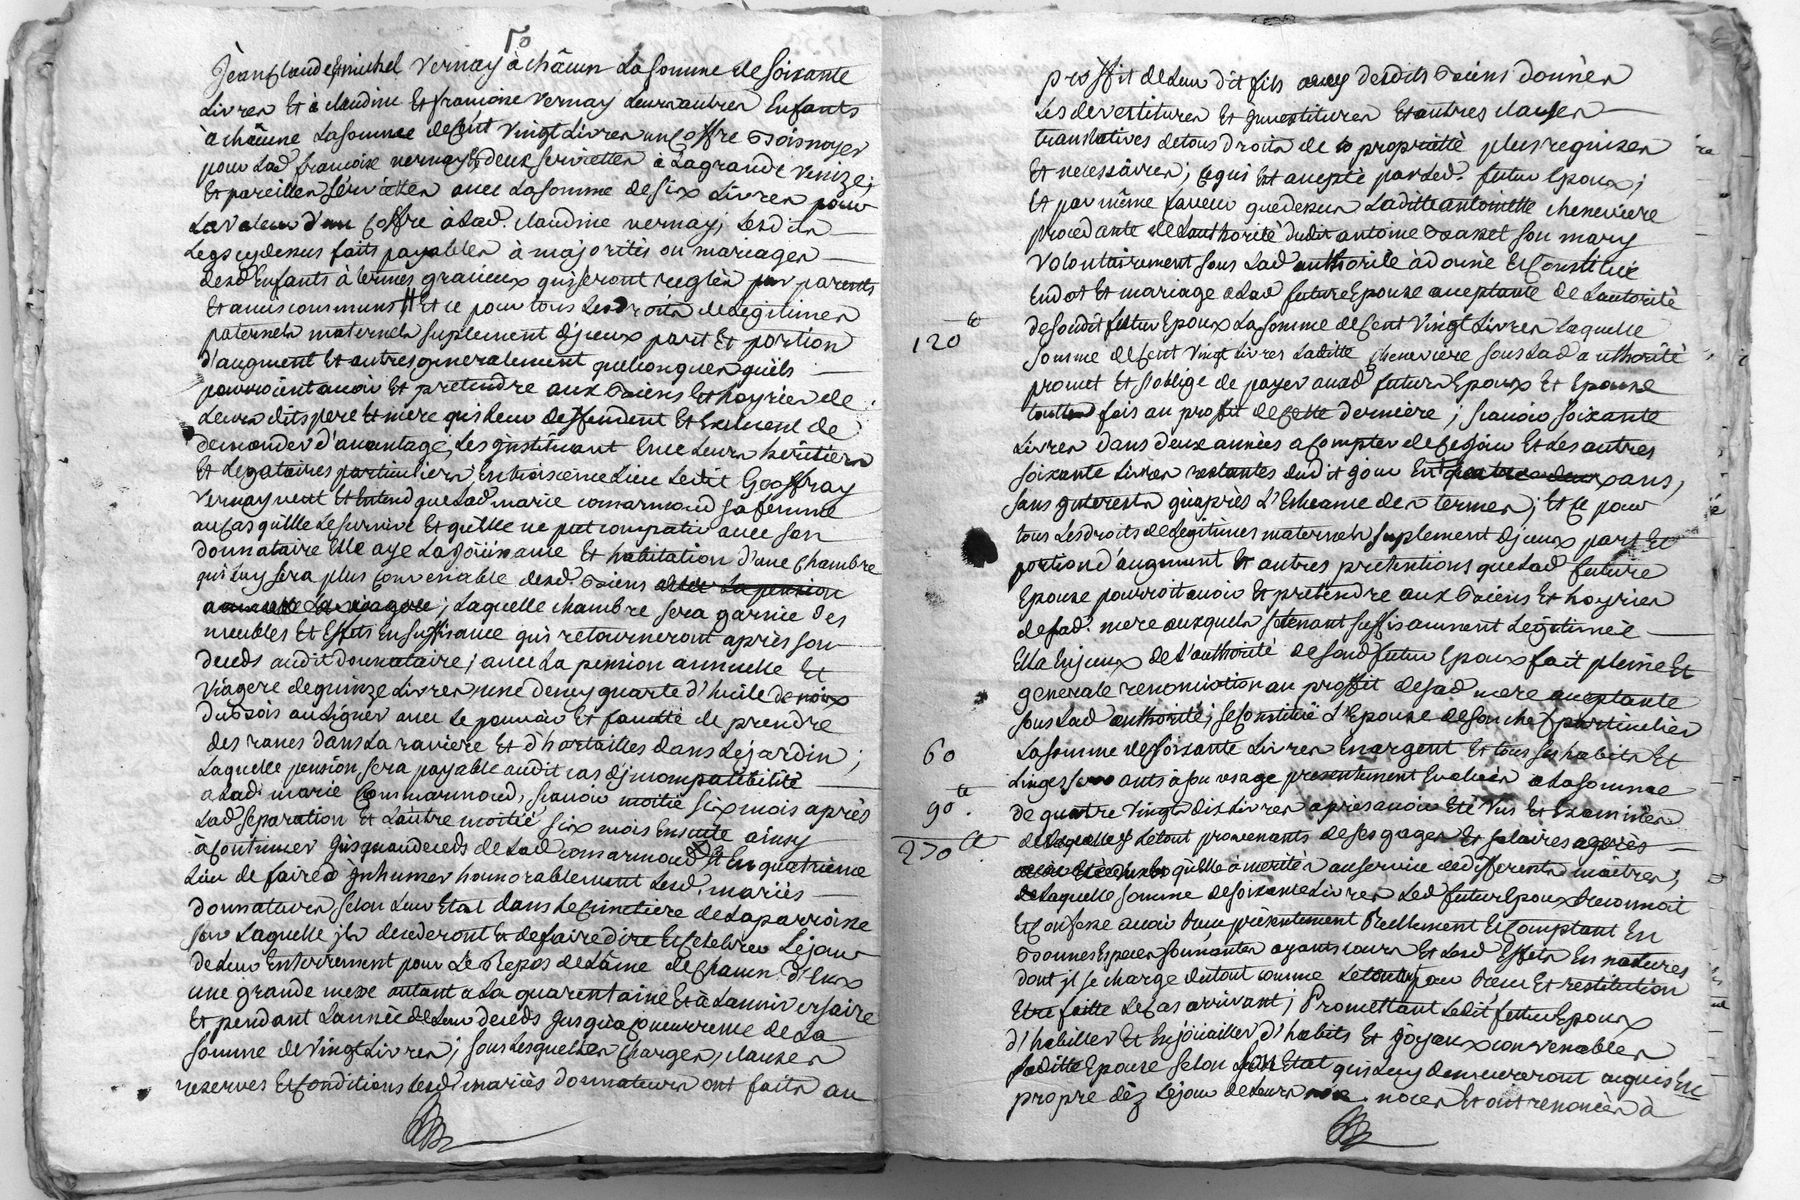 Jean Claude et michel Vernay à châcun La somme de soixante
Livres Et à claudine Et francoise Vernay Leurs autres Enfants
à châcune La somme de Cent Vingt Livres un Coffre Bois noyer
pour Lad. francoise vernay et deux serviettes à La grande Venize;
Et pareilles serviettes avec La somme de six Livres pour
La valeur d'un Coffre à Lad. claudine vernay; Lesdits
Legs cydessus faits payables à majorités ou mariages
desd Enfants à termes gratieux qui seront reglés par parents
Et amis communs Et ce pour tous Les droits de Legitimes
paternels maternels suplement d'jceux part Et portion
d'augment Et autres generalement quelconques qu'ils
pourroient avoir Et pretendre aux Biens Et hoyries de
Leurs dits pere Et mere qui Leur deffendent Et de
demander d'avantage; Les jnstituant En ce Leurs héritiers
Et Legataires particuliers; En troisieme Lieu Ledit Geoffray
Vernay veut Et Entend que Lad marie comarmond sa femme
au Cas qu'Elle Le survive Et qu'Elle ne put compatir avec son
donnataire Elle aye La jöüissance Et habitation d'une Chambre
qui Luy sera plus Convenable desd. Biens avec La pension
annuelle Et viagere; Laquelle chambre sera garnie des
meubles Et Effets En suffisance qui retourneront après son
deceds audit donnataire; avec La pension annuelle Et
Viagere de quinze Livres, une demy quarte d'huile de noix
du Bois au Ligner avec Le pouvoir Et faculté de prendre
des raves dans La raviere Et d'hortailles dans Le jardin;
Laquelle pension sera payable audit cas d'jncompatibilité
a Lad. marie Commarmond, sçavoir moitié six mois après
Lad séparation Et L'autre moitié six mois Ensuite ainsy
à Continuer jusqu'au deceds de Lad comarmond Et En quatrieme
Lieu de faire jnhumer honnorablement Lesd. mariés
donnateurs selon Leur Etat dans Le Cimetiere de La parroisse
sur Laquelle jls decederont Et de faire dire Et Celebrer Le jour
de Leur Enterrement pour Le Repos de L'ame de Chacun d'Eux
une grande messe autant a La quarantaine Et à L'anniversaire
Et pendant L'année de Leur deceds jusqu'a Concurrence de La
somme de Vingt Livres; sous Lesquelles Charges, clauses
reserves Et Conditions Lesd. mariés donnateurs ont faits au
proffit de Leur dit fils desdits Biens donnés
Les devestitures Et jnvestitures Et autres clauses
translatives de tous droits de propriété plus requises
Et necessaires; Ce qui Est accepté par Led. futur Epoux;
Et par même faveur que dessus Laditte antoinette cheneviere
procedante de L'authorité dudit antoine Basset son mary
Volontairement sous Lad authorité à donné Et Constitué
En dot Et mariage a Lad future Epouse acceptante de L'autorité
de sondit futur Epoux La somme de Cent Vingt Livres Laquelle
120 tt
somme de Cent Vingt Livres Laditte Cheneviere sous Lad authorité
promet Et s'oblige de payer auxd. futurs Epoux Et Epouse
touttes fois au proffit de Cette derniere; sçavoir soixante
Livres dans deux années a Compter de Ce jour Et Les autres
soixante Livres restantes dudit jour En ans,
sans jnterests qu'après L'Echeance des termes; Et Ce pour
tous Les droits de Legitimes maternels suplement d'jceux part Et
portion d'augment Et autres pretentions que Lad future
Epouse pourroit avoir Et pretendre aux Biens Et hoyries
de sad. mere auxquels se tenant suffisamment Légitimée
Ell'a Enjceux de L'authorité de sond futur Epoux fait pleine Et
generale renonciation au proffit de sad mere acceptante
sous Lad authorité; se Constitüe L'Epouse de son chef particulier
60
La somme de soixante Livres En argent Et tous ses habits Et
Linges servants à son usage presentement Evalués a La somme
90 tt.
de quatre Vingt dix Livres après avoir Eté Vus Et Examinés
270 tt.
Le tout provenants de ses gages Et salaires
qu'Elle à merités au service de differents maitres;
de Laquelle somme de soixante Livres Led futur Epoux Reconnoit
Et Confesse avoir Recu présentement Reellement Et Comptant En
Bonnes Especes sonnantes ayants cours Et Lesd. Effets En natures
dont jl se charge du tout comme Recu Et restitution
Etre faitte Le Cas arrivant; Promettant Ledit futur Epoux
d'habiller Et Enjoüailler d'habits Et joyaux convenables
Saditte Epouse selon son Etat qui Luy demeureront acquis En
propre dèz Le jour de Leurs noces Et ont renoncés à